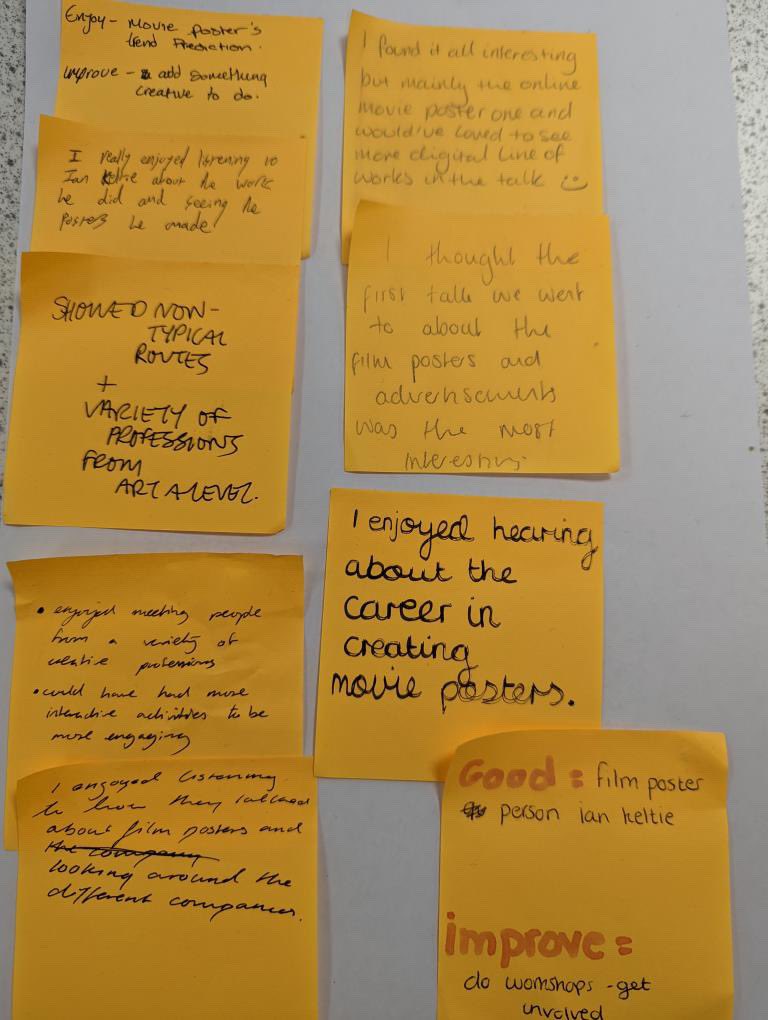 Enjoy - Movie Poster's
trend Prediction.
improve - add something
creative to do.
I really enjoyed listening to
Ian Keltie about he work
he did and seeing he
posters he made
SHOWED NON-
TYPICAL
ROUTES
+
VARIETY OF
PROFESSIONS
FROM
ART A LEVEL.
• enjoyed meeting people
from a variety of
creative professions
• could have had more
interactive activities to be
more engaging
I engoyed listening
to how they talked
about film posters and
the company
looking around the
different companies.
I found it all interesting
but mainly the online
movie poster one and
would've loved to see
more digital line of
works in the talk
I thought the
first talk we went
to about the
film posters and
advertisements
was the most
interesting
I enjoyed hearing
about the
career in
creating
movie posters.
Good = film poster
person ian keltie
improve =
do workshops - get
involved